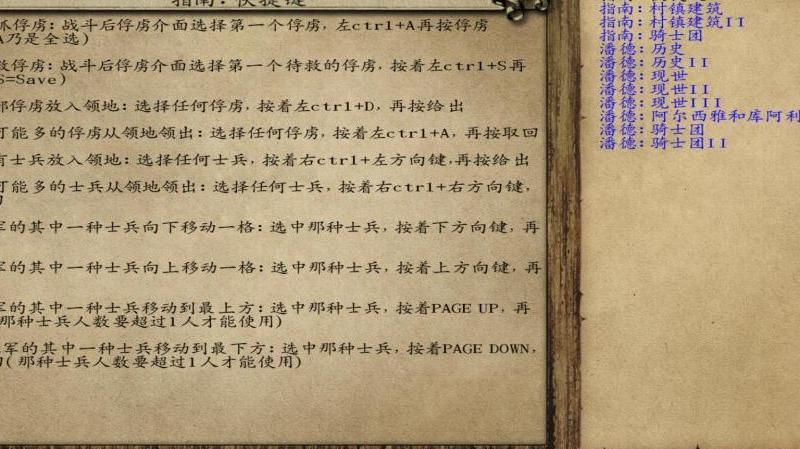 指南:快捷键
抓俘虏:战斗后俘虏介面选择第一个俘虏,左ctrl+A再按俘虏
A乃是全选)
救俘虏:战斗后俘虏介面选择第一个待救的俘虏,按着左ctrl+S再
S=Save)
部俘虏放入领地:选择任何俘虏,按着左ctrl+D,再按给出
可能多的俘虏从领地领出:选择任何俘虏,按着左ctrl+A,再按取回
有士兵放入领地:选择任何士兵,按着右ctrl+左方向键,再按给出
可能多的士兵从领地领出:选择任何士兵,按着右ctrl+右方向键,
军的其中一种士兵向下移动一格:选中那种士兵,按着下方向键,再
军的其中一种士兵向上移动一格:选中那种士兵,按着上方向键,再
军的其中一种士兵移动到最上方:选中那种士兵,按着PAGE UP,再
那种士兵人数要超过1人才能使用)
军的其中一种士兵移动到最下方:选中那种士兵,按着PAGE DOWN,
(那种士兵人数要超过1人才能使用)
指南:村镇建筑
指南:村镇建筑II
指南:骑士团
潘德:历史
潘德:历史II
潘德:现世
潘德:现世II
潘德:现世III
潘德:阿尔西雅和库阿利
潘德:骑士团
潘德:骑士团II